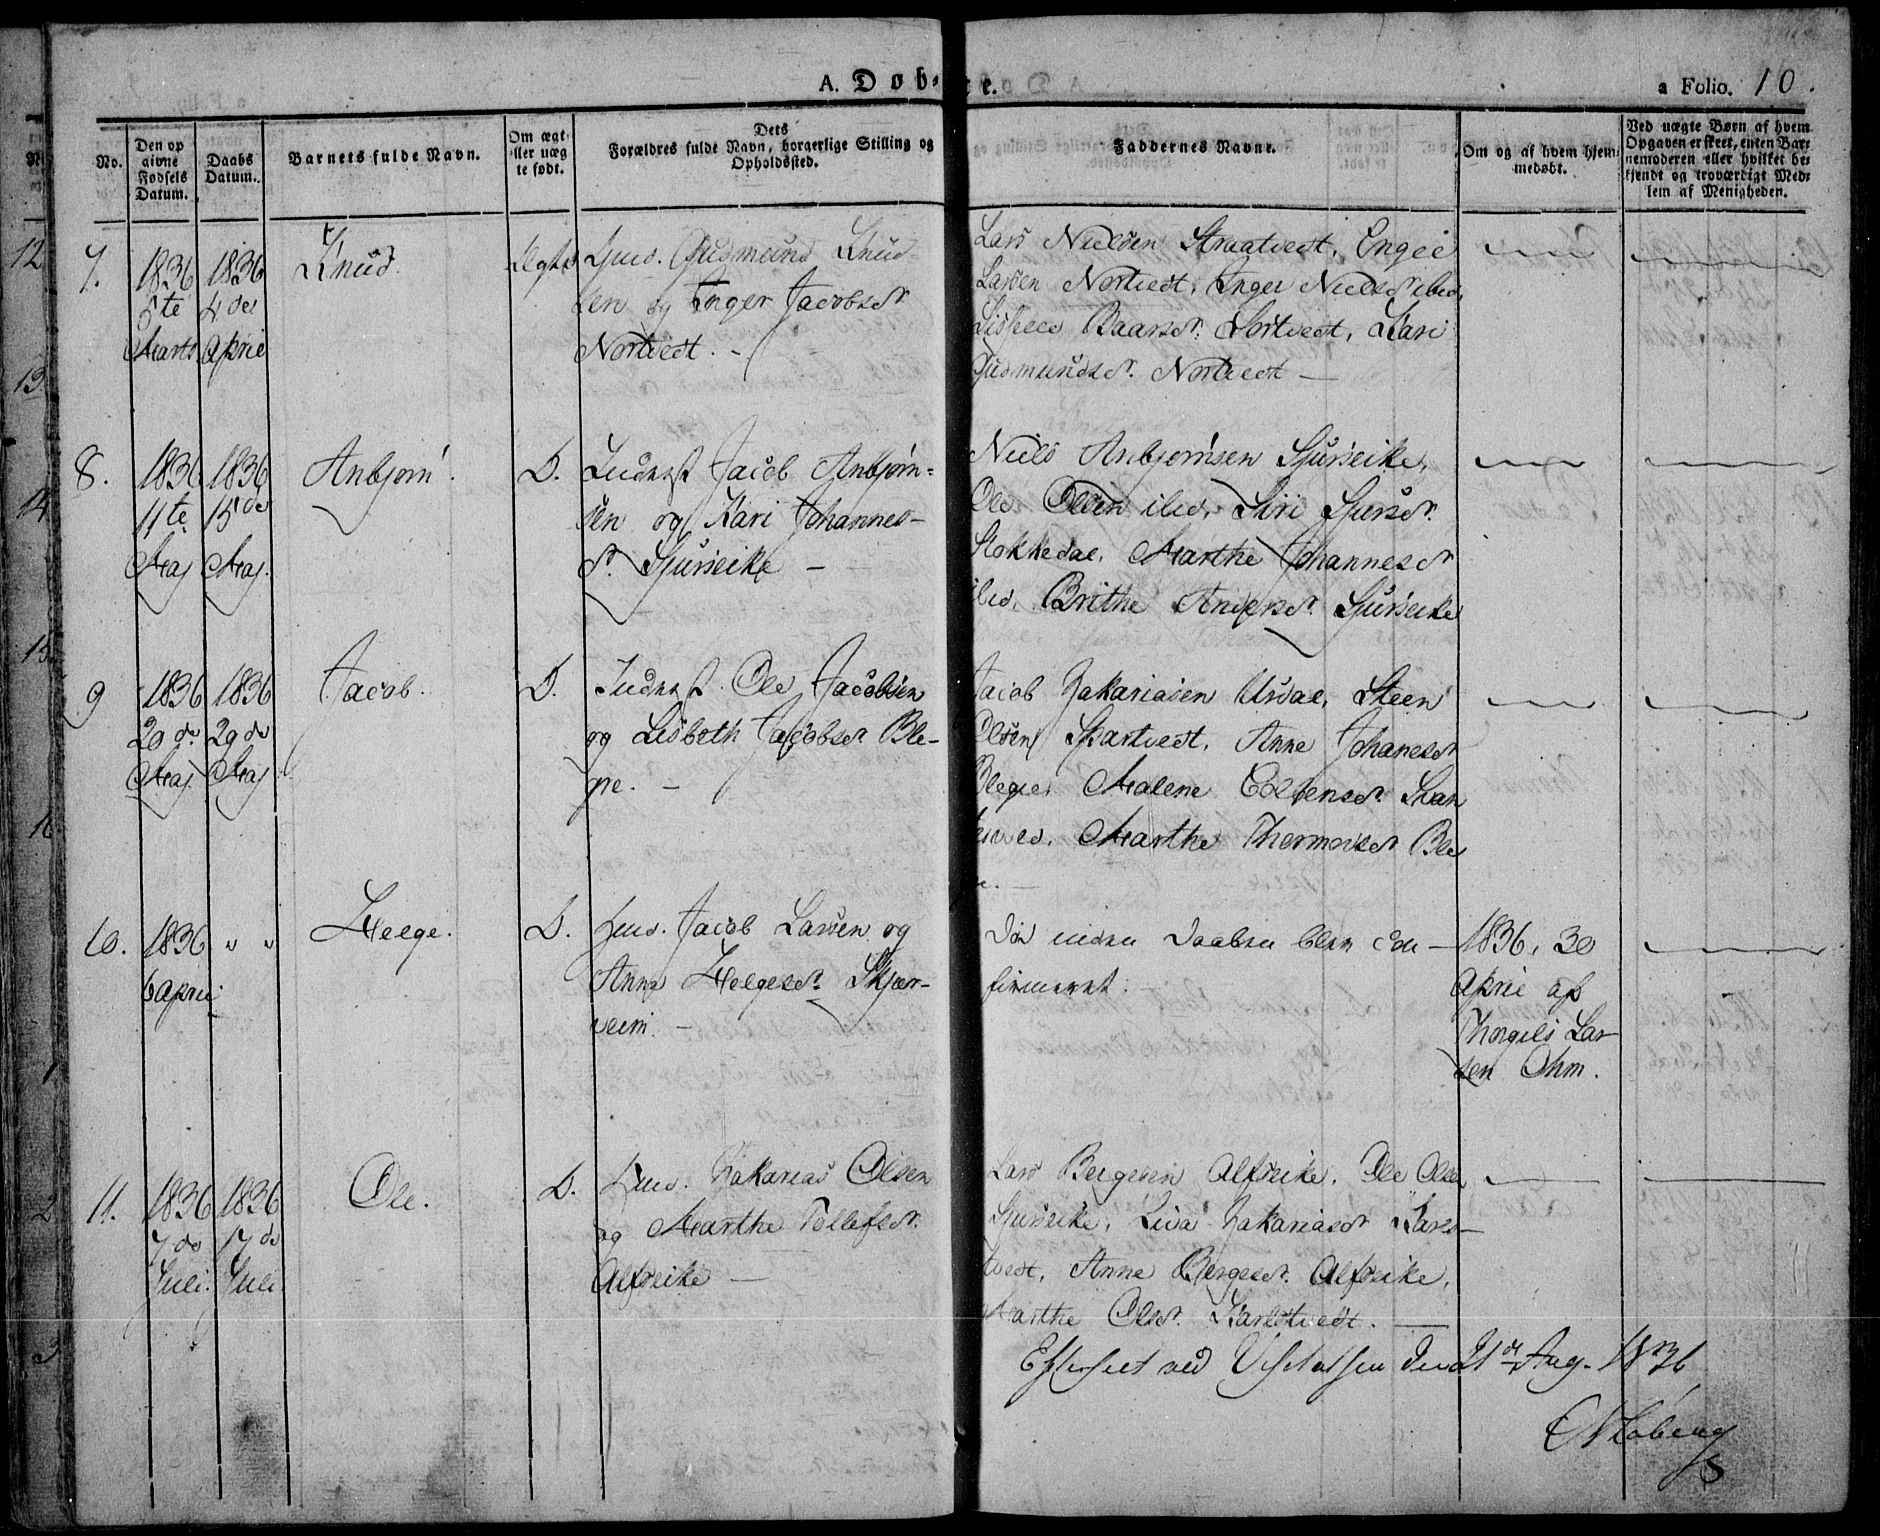 A. Døbte.
a Folio. 10.
No.
Den op
givne
Fødsels
Datum.
Daabs
Datum.
Barnets fulde Navn.
Om ægt
eller uæg
te født.
Dets
Forældres fulde Navn, borgerlige Stilling og
Opholdssted.
Faddernes Navne.
Om og af hvem hjem
medøbt.
Ved uægte Børn af hvem
Opgaven er skeet, enten Bar
nemoderen eller hvilket be
kjendt og troværdigt Med
lem af Menigheden.
7.
1836
5te
Marts
1836
4de
April
Knud.
Ægte
Huus. Gudmund Knud
sen og Inger Jacobsdr
Nortvedt. -
Lars Nielsen Straatvedt, Engel
Larsen Nortvedt, Inger Nielsdr ibid,
Baarsdr. Sortvedt, Kari
Gudmundsdr. Nortvedt —
8.
1836
11te
Maj
1836
15de
Maj.
Anbjørn.
D.
Inderst Jacob Anbjørn-
sen og Kari Johannes-
dr. Sjurseike —
Niels Anbjørnsen Sjurseike,
Ole Olsen ibid, Siri Sjursdr.
Stokkedal, Marthe Johannesdr
ibid, Brithe Andersdr. Sjurseike
9
1836
20de
Maj.
1836
29de
Maj
Jacob.
D.
Inderst. Ole Jacobsen
og Lisbeth Jacobsdr Ble-
gie. —
Jacob Zakariasen Ursdal, Steen
Olsen Skartvedt, Anne Johanesdr
Blegie, Malene Endtensdr. Skar
tved, Marthe Thormodsdr Ble
ie. —
10.
1836
6 April
" "
Helge.
D.
Huus. Jacob Larsen og
Anna Helgesdr. Skjer-
veim. —
Død inden Daaben blev con-
firmeret.
1836, 30
April af
Thorgils Lar-
sen Ohm.
11.
1836
7de
Juli.
1836
17de
Juli.
Ole.
D.
Huus. Zakarias Olsen
og Marthe Tollefsdr.
Alfseike —
Lars Bergesen Alfseike, Ole Olsen
Sjurseike, Liva Zakariasdr Karls-
tvedt, Anne Bergesdr. Alfseike,
Marthe Olsdr. Karlstvedt. —
Efterseet ved Visitatsen den 21de Aug. 1836
12
13
14
15
16
1
2
3